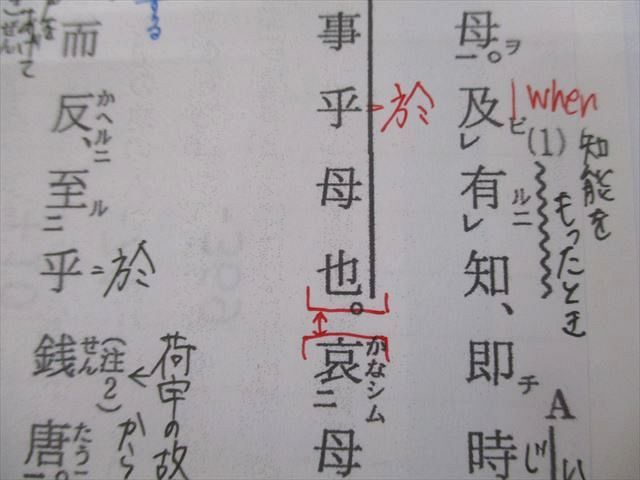 when
知能を
もったとき
母ヲ一。及ビレ(1)有ルニレ知、即チ時
A
じい
事乎母也。哀かなシム二母
於
而反かヘルニ、至ル二乎銭せん(注2)唐たう一。
=於
荷宇の故
から